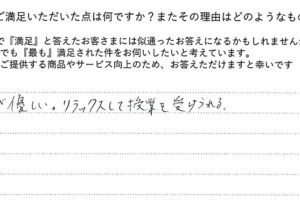 ご満足いただいた点は何ですか？またその理由はどのようなもの
で『満足』と答えたお客さまには似通ったお答えになるかもしれません
でも『最も』満足された件をお伺いしたいと考えています。
ご提供する商品やサービス向上のため、お答えいただけますと幸いです
優しい。リラックスして授業を受けられる。